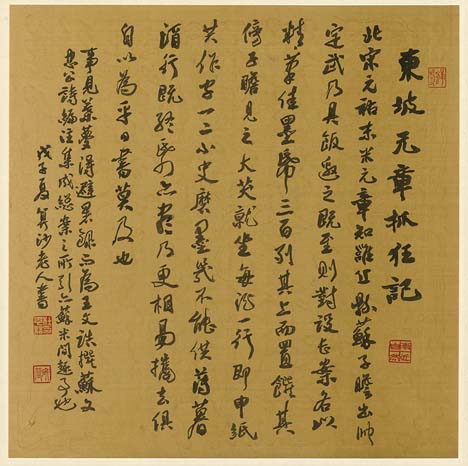 東坡元章抓狂記
此宋元祐末米元章知雍丘縣蘇子瞻出帥
定武乃具飯邀之既至則對設長案各以
精筆佳墨紙三百列其上而置饌其
傍子瞻見之大笑就坐每酒一行即申紙
共作字一二小史磨墨幾不能供薄暮
酒行既終紙亦盡乃更相易攜去俱
自以為平日書莫及也
事見葉夢得避暑錄而為王文誥撰蘇文
忠公詩編注集成總案之所引亦蘇米間趣事也
戊子夏算沙老人書